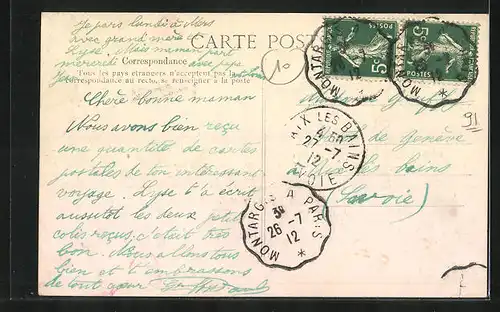 Je pars lundi à Mers
avec grand mère
Lyse, Mais maman part
mercredi avec
CARTE POST
Correspondance
Tous les pays étrangers n'acceptent pas la
Correspondance au recto, se renseigner à la poste
Chère bonne maman
Nous avons bien reçu
une quantité de cartes
postales de ton intéressant
voyage. Lyse t'a écrit
aussitôt les deux petits
colis reçus, c'était très
bon. Nous allons tous
bien et t'embrassons
de tout cœur
de Genève
les bains
(Savoie)
10
91
5c
POSTES
5c
MONTARG
12
MONTARG
12
AIX LES BAINS
27 -7
12
SAVOIE
MONTARGIS A PARIS
26 -7
12